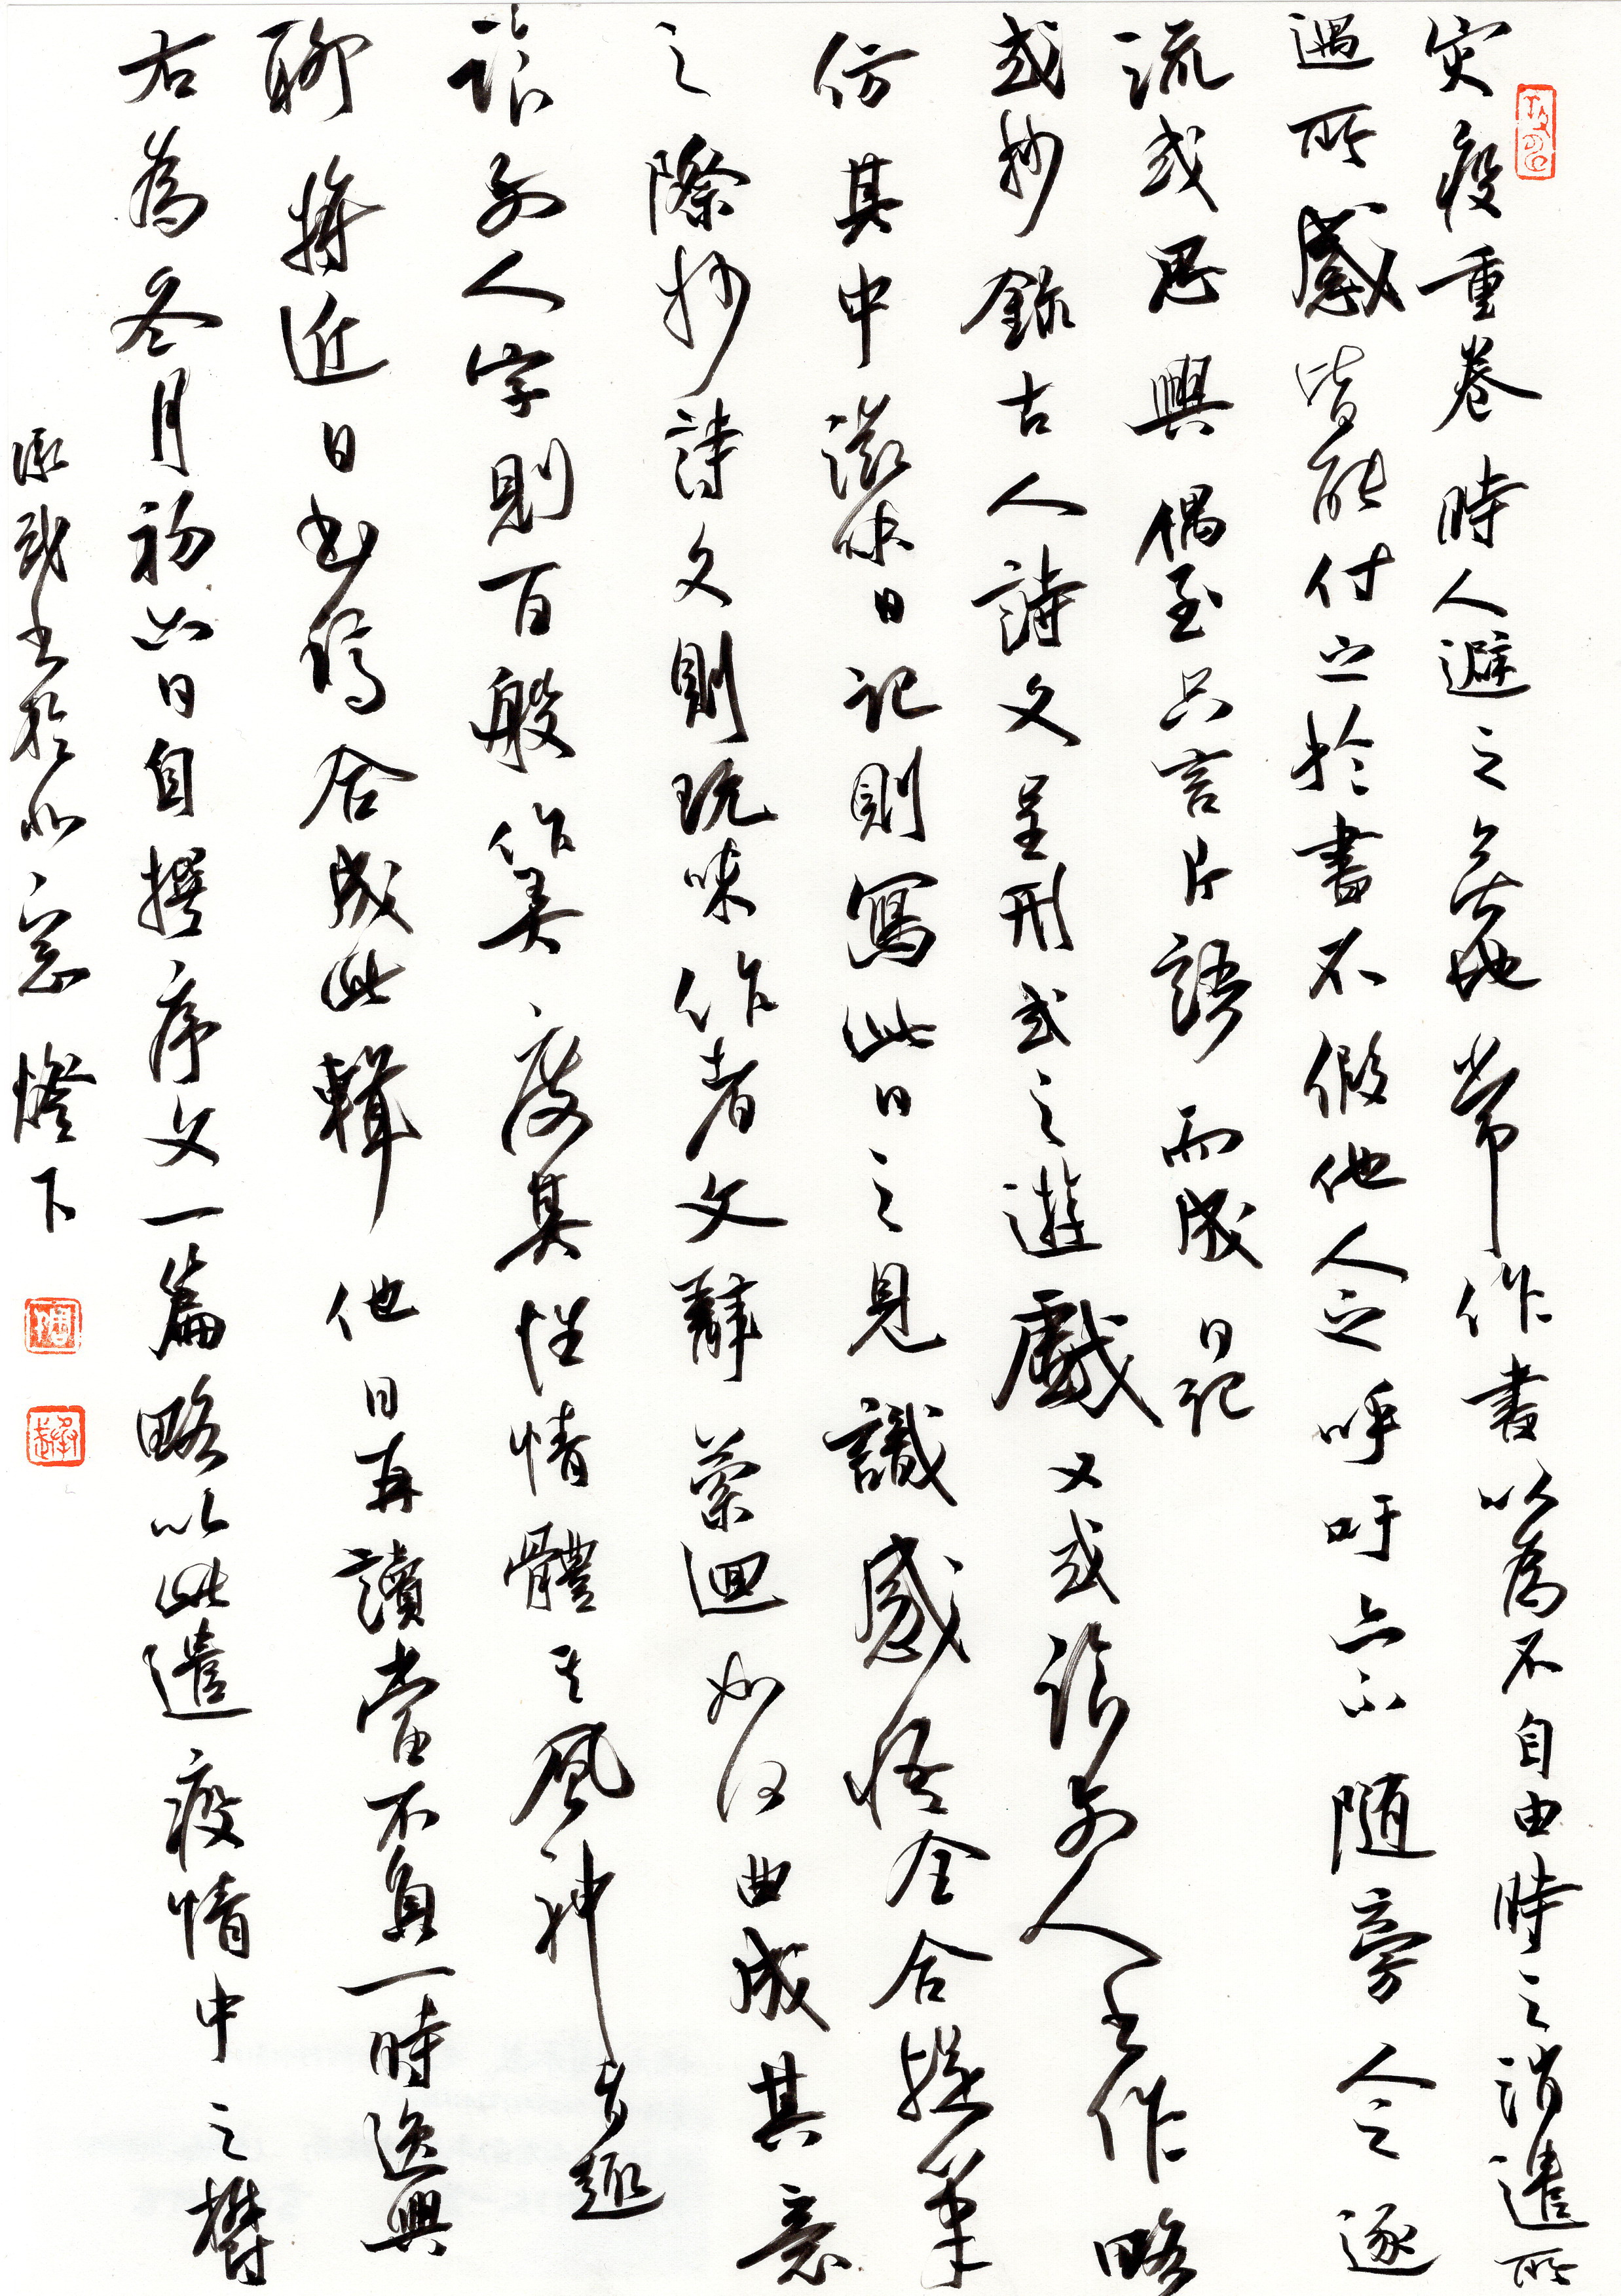 災疫重卷時人避之無地常作書以為不自由時之消遣所
遇所感皆能付之於書不假他人之呼吁亦不隨旁人之逐
流或思興偶至只言片語而成日記
或抄錄古人詩文呈刑式之遊戲又或臨前人之作略
仿其中滋味日記則寫此日之見識感悟全合提筆
之際抄詩文則玩味作者文辭縈迴如何曲成其意
臨前人字則百般作美度其性情體其風神旨趣
聊將近日書稿合成此輯他日再讀當不負一時逸興
右為冬月初六日自撰序文一篇略以此遣疫情中之鬱
承或書於北窗燈下